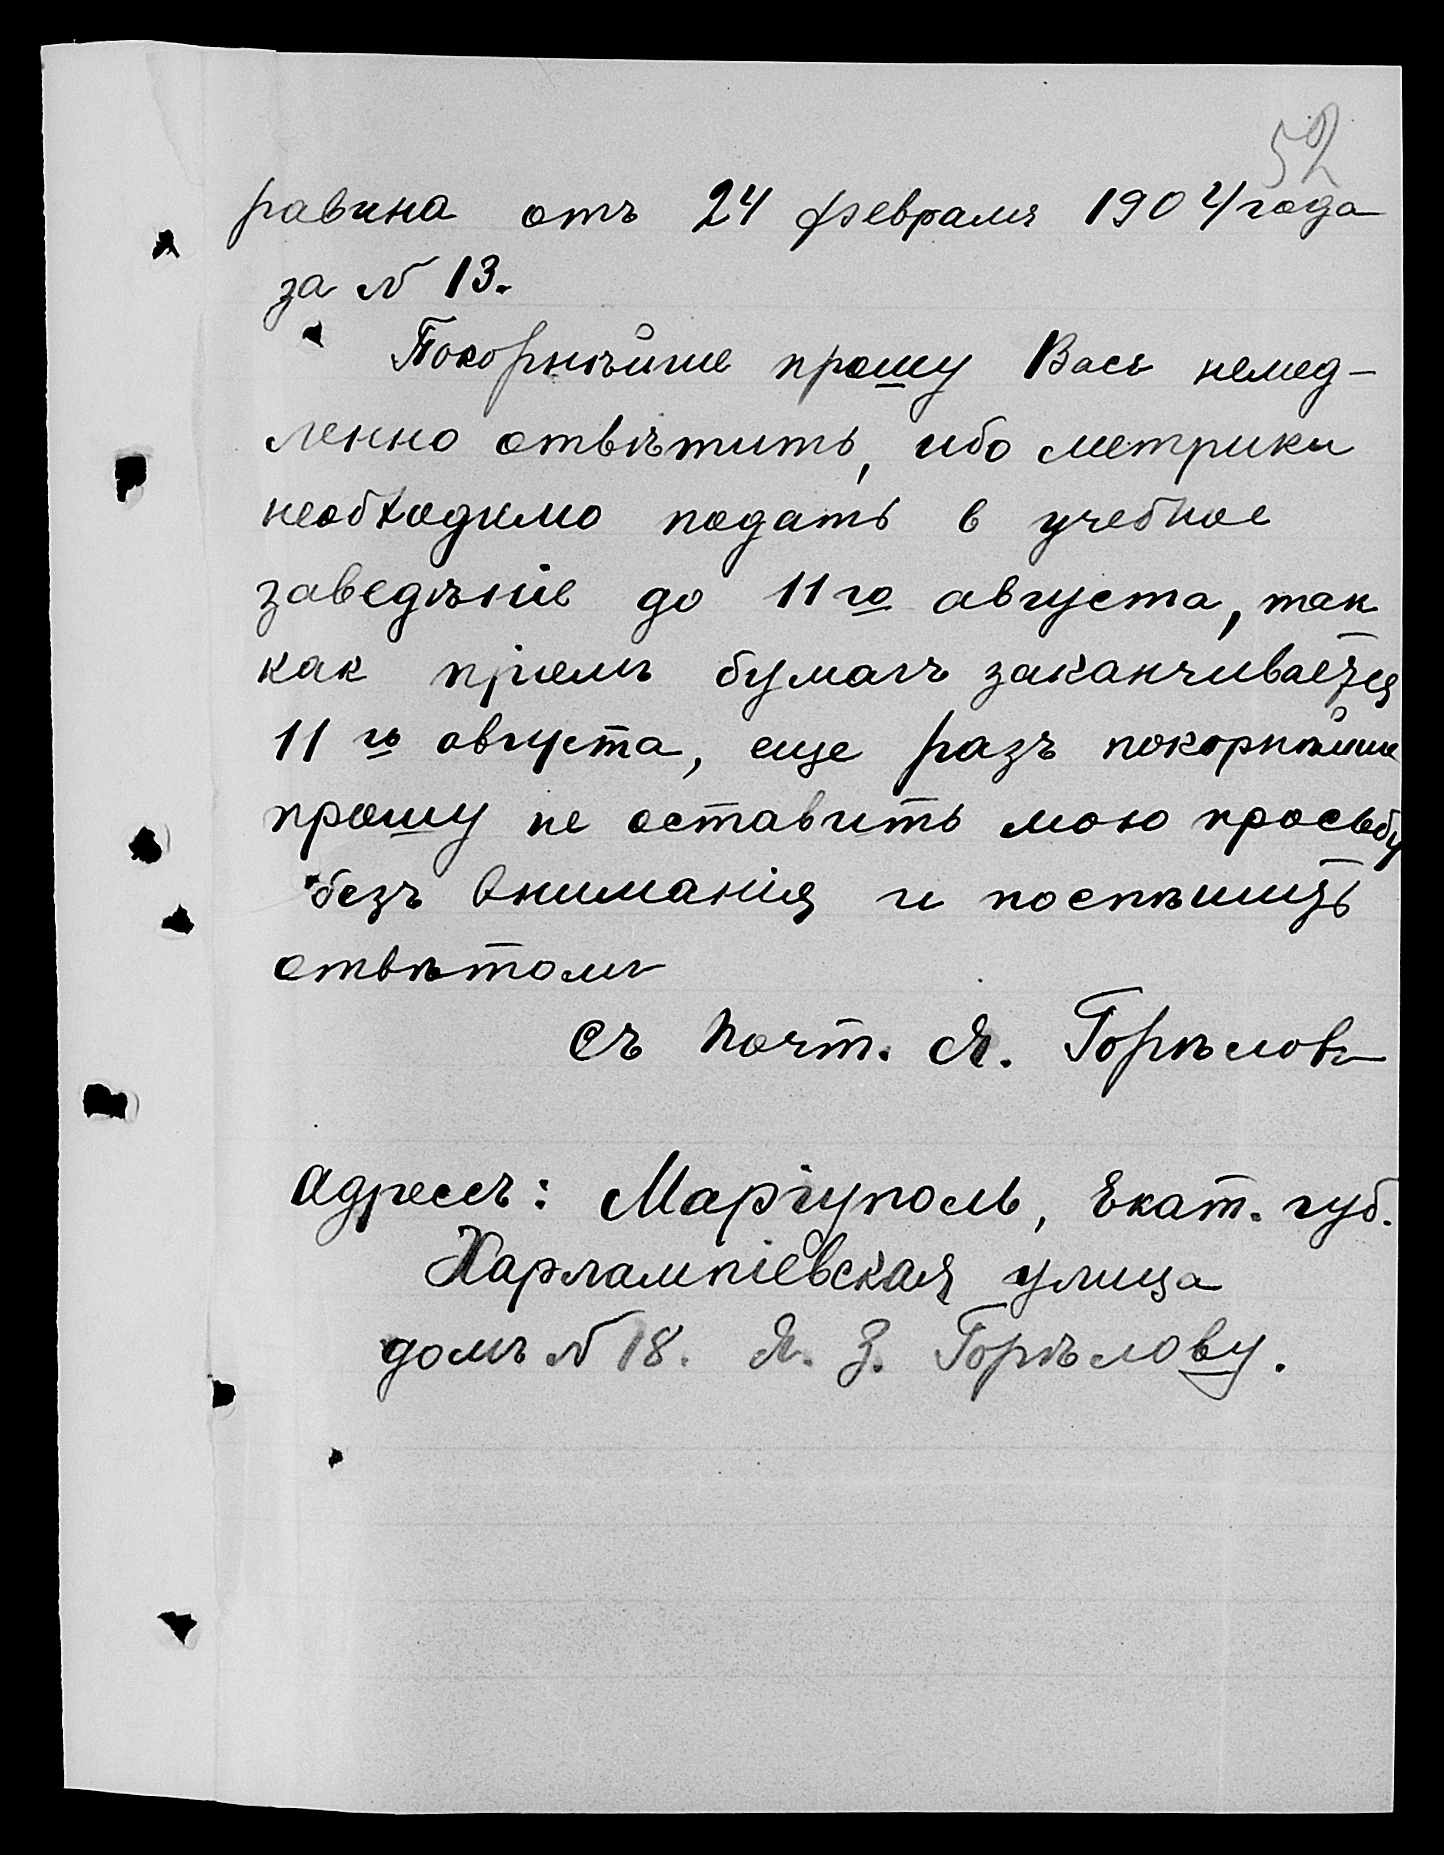 52
равина отъ 24 февраля 1904 года
за № 13.
Покорнѣйше прошу Васъ немед-
ленно отвѣтить, ибо метрики
необходимо подать в учебное
заведѣніе до 11го августа, так
как пріемъ бумагъ заканчивается
11го августа, еще разъ покорнѣйше
прошу не оставить мою просьбу
безъ вниманія и поспѣшить
отвѣтомъ
Съ почт. Я. Горѣловъ
Адресъ: Маріуполь, Екат. губ.
Харлампіевская улица
домъ № 18. Я. З. Горѣлову.